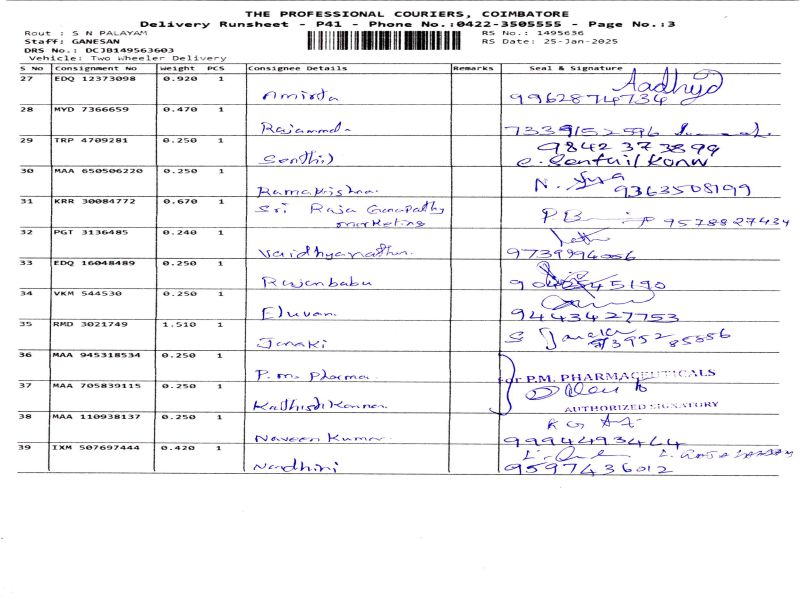 THE PROFESSIONAL COURIERS, COIMBATORE
Delivery Runsheet - P41 - Phone No.:0422-3505555 - Page No.:3
Rout : S N PALAYAM
RS No.: 1495636
Staff: GANESAN
RS Date: 25-Jan-2025
DRS No.: DCJB149563603
Vehicle: Two Wheeler Delivery
S No Consignment No Weight PCS Consignee Details Remarks Seal & Signature
27 EDQ 12373098 0.920 1
Amirta 99628 74734
28 MYD 7366659 0.470 1
7339152596
29 TRP 4709281 0.250 1 9842373899
Senthil
30 MAA 650506220 0.250 1
Ramakrishna 9363508199
31 KRR 30084772 0.670 1 Sri Raja Ganapathy
marketing 9578827434
32 PGT 3136485 0.240 1
Vaidhyanathan 9739994006
33 EDQ 16048489 0.250 1
Rajanbabu
34 VKM 544530 0.250 1
Eluvan 9443427753
35 RMD 3021749 1.510 1
Janaki S Janaki
36 MAA 945318534 0.250 1
P.m. Pharma For P.M. PHARMACEUTICALS
37 MAA 705839115 0.250 1
AUTHORIZED SIGNATORY
38 MAA 110938137 0.250 1
Naveen Kumar 9994493464
39 IXM 507697444 0.420 1
Nandhini 9597436012